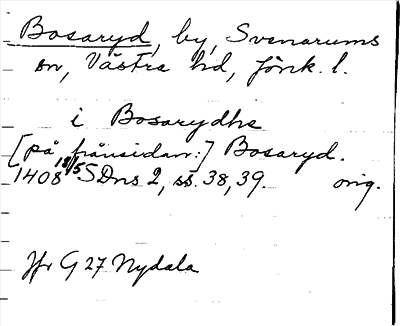 Bosaryd, by, Svenarums
sn, Västra hd, Jönk. l.
i Bosarydhe
[på frånsidan:] Bosaryd.
1408 18/5 SDns 2, ss. 38, 39. orig.
Jfr G 27 Nydala